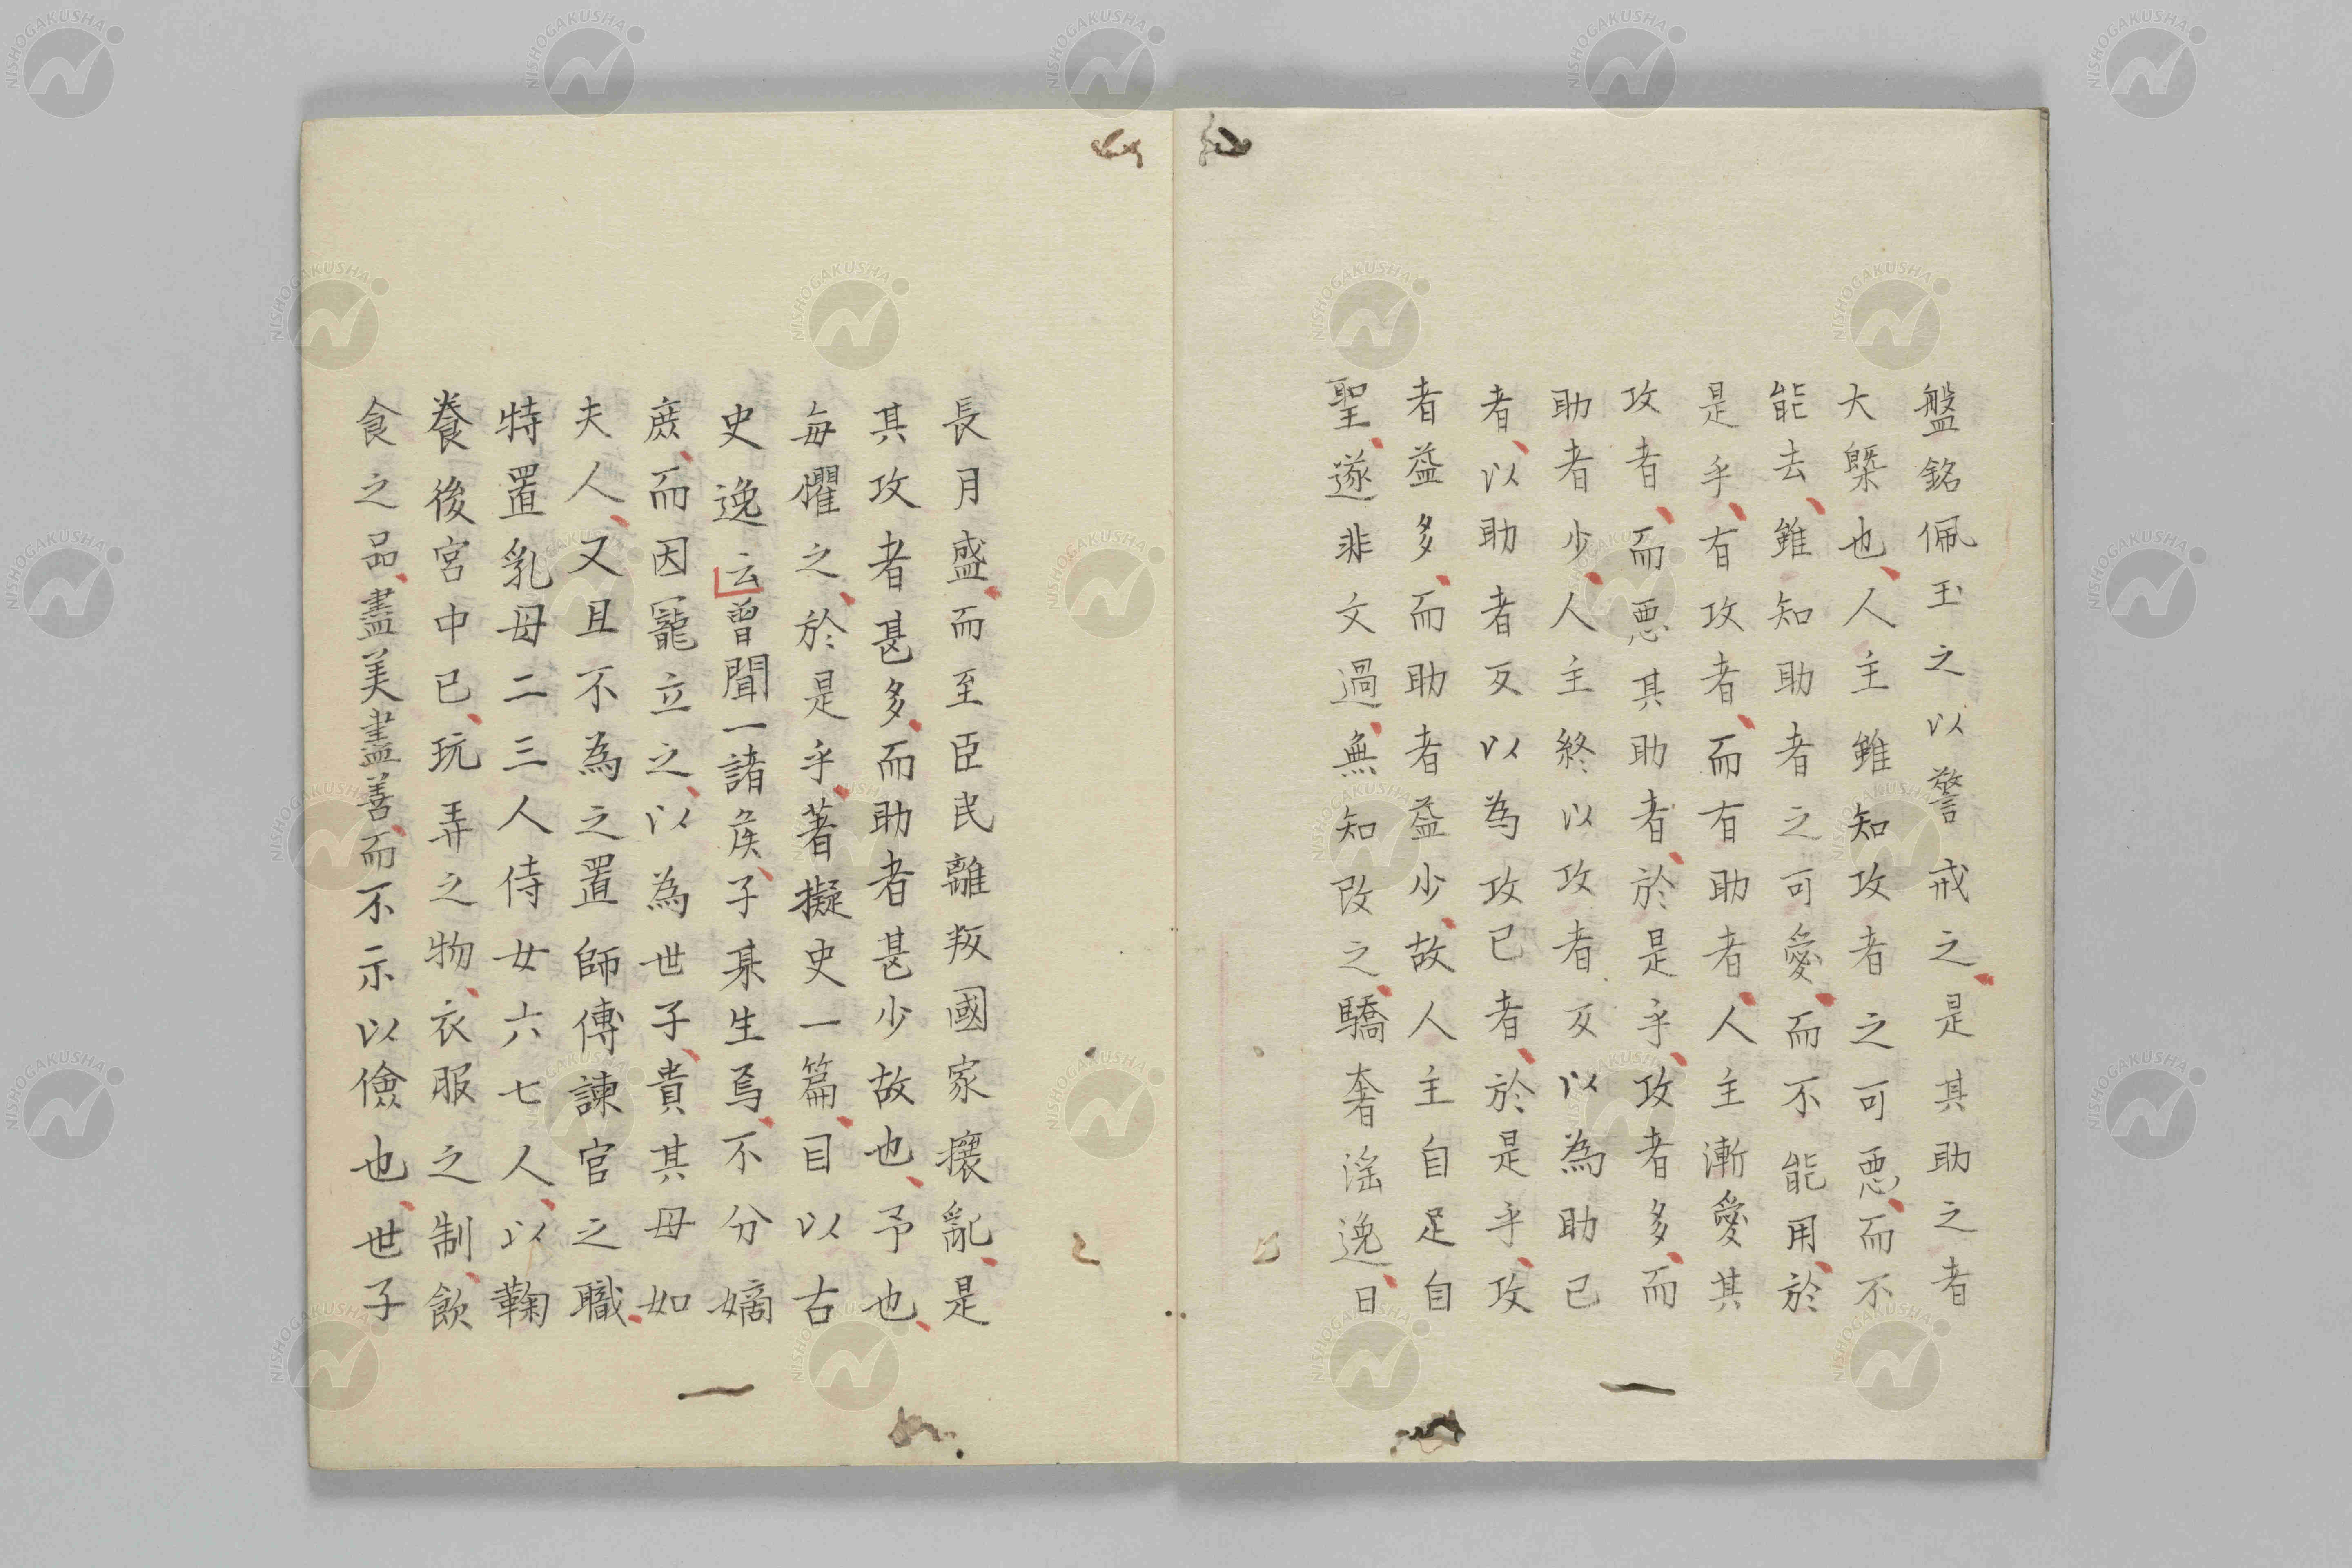 盤銘佩玉之以警戒之是其助之者
大槩也人主雖知攻者之可惡而不
能去雖知助者之可愛而不能用於
是乎有攻者而有助者人主漸愛其
攻者而惡其助者於是乎攻者多而
助者少人主終以攻者反以為助己
者以助者反以為攻己者於是乎攻
者益多而助者益少故人主自足自
聖遂非文過無知改之驕奢淫逸日
長月盛而至臣民離叛國家壞亂是
其攻者甚多而助者甚少故也予也
每懼之於是乎著擬史一篇目以古
史逸云曾聞一諸侯子某生焉不分嫡
庶而因寵立之以為世子貴其母如
夫人又且不為之置師傅諫官之職
特置乳母二三人侍女六七人以鞠
養後宮中已玩弄之物衣服之制飲
食之品盡美盡善而不示以儉也世子
NISHOGAKUSHA